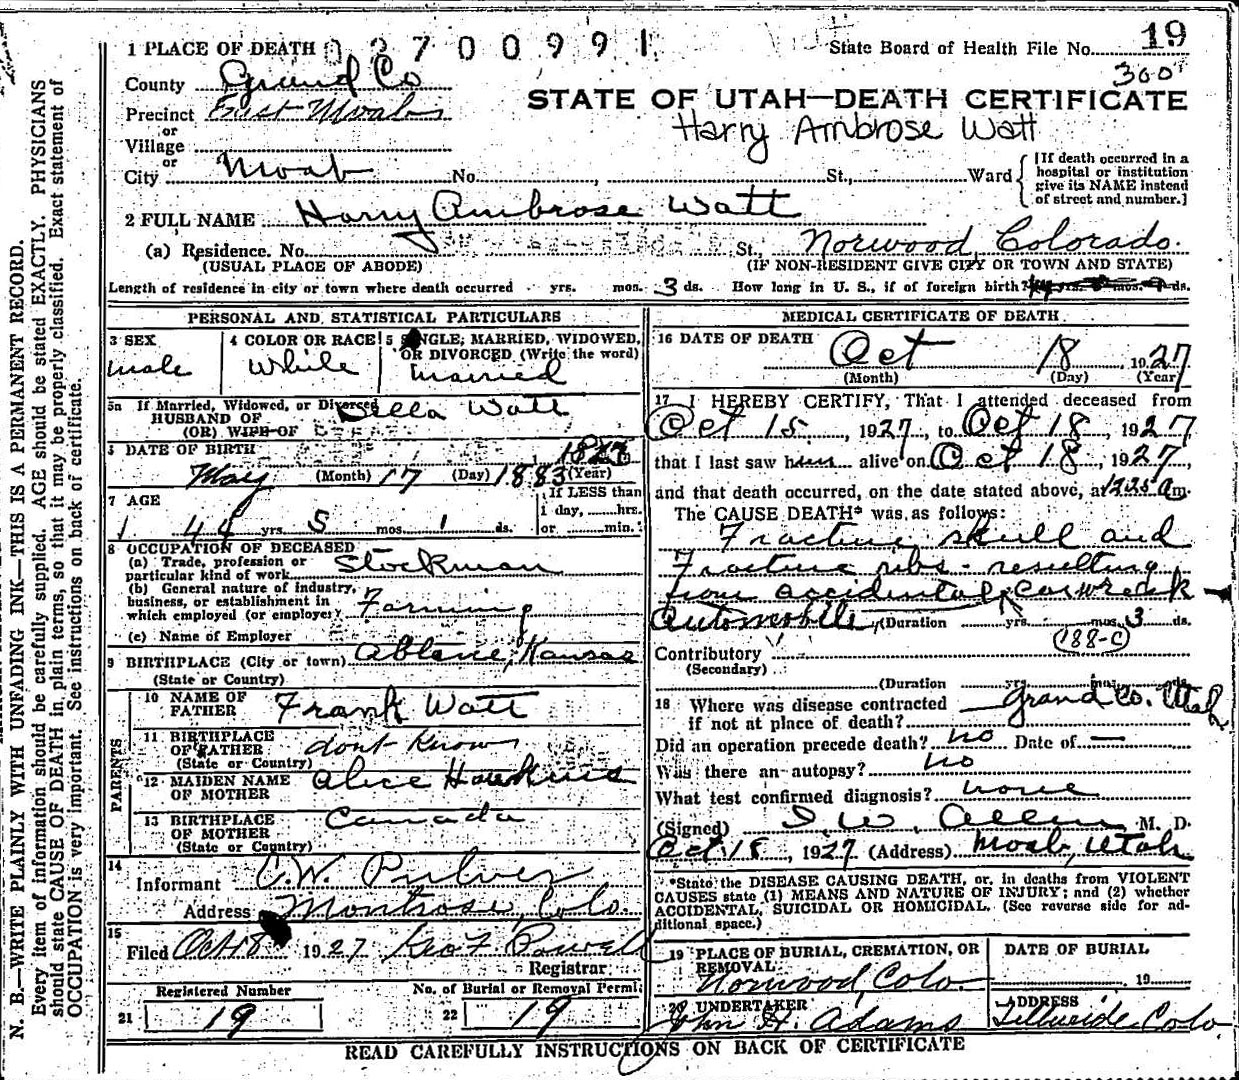 1 PLACE OF DEATH 02700991
State Board of Health File No. 19
County Grand Co
300
STATE OF UTAH—DEATH CERTIFICATE
Precinct East Moab
Harry Ambrose Watt
or
Village
or
City Moab No. , St., Ward
[If death occurred in a
hospital or institution
give its NAME instead
of street and number.]
2 FULL NAME Harry Ambrose Watt
(a) Residence. No. St., Norwood, Colorado.
(USUAL PLACE OF ABODE) (IF NON-RESIDENT GIVE CITY OR TOWN AND STATE)
Length of residence in city or town where death occurred yrs. mos. 3 ds. How long in U. S., if of foreign birth? yrs. mos. ds.
PERSONAL AND STATISTICAL PARTICULARS
3 SEX male
4 COLOR OR RACE White
5 SINGLE, MARRIED, WIDOWED,
OR DIVORCED (Write the word)
married
5a If Married, Widowed, or Divorced
HUSBAND OF Della Watt
(OR) WIFE OF
DATE OF BIRTH
May (Month) 17 (Day) 1883 (Year)
7 AGE
44 yrs. 5 mos. 1 ds.
If LESS than
1 day, hrs.
or min.
8 OCCUPATION OF DECEASED
(a) Trade, profession or
particular kind of work Stockman
(b) General nature of industry,
business, or establishment in
which employed (or employer) Farming
(c) Name of Employer
9 BIRTHPLACE (City or town) Ablene, Kansas
(State or Country)
PARENTS
10 NAME OF
FATHER Frank Watt
11 BIRTHPLACE
OF FATHER dont know
(State or Country)
12 MAIDEN NAME
OF MOTHER Alice Hawkins
13 BIRTHPLACE
OF MOTHER Canada
(State or Country)
14
Informant C.W. Pulver
Address Montrose, Colo.
15
Filed Oct 18 1927 Geo F. Powell
Registrar
Registered Number
21 19
No. of Burial or Removal Permit
22 19
MEDICAL CERTIFICATE OF DEATH
16 DATE OF DEATH Oct 18 1927
(Month) (Day) (Year)
17 I HEREBY CERTIFY, That I attended deceased from
Oct 15, 1927, to Oct 18, 1927
that I last saw him alive on Oct 18, 1927
and that death occurred, on the date stated above, at 12:25 a m.
The CAUSE DEATH* was as follows:
Fracture skull and
Fracture ribs - resulting
from accidental car wreck
Automobile (Duration yrs. mos. 3 ds.
188-C
Contributory
(Secondary)
(Duration yrs. mos. ds.
18 Where was disease contracted
if not at place of death? Grand Co. Utah
Did an operation precede death? no Date of —
Was there an autopsy? no
What test confirmed diagnosis? none
(Signed) I. W. Allen, M. D.
Oct 18, 1927 (Address) Moab, Utah
*State the DISEASE CAUSING DEATH, or, in deaths from VIOLENT
CAUSES state (1) MEANS AND NATURE OF INJURY; and (2) whether
ACCIDENTAL, SUICIDAL OR HOMICIDAL. (See reverse side for ad-
ditional space.)
19 PLACE OF BURIAL, CREMATION, OR
REMOVAL
Norwood Colo.
DATE OF BURIAL
19
20 UNDERTAKER
John H. Adams
ADDRESS
Telluride, Colo
READ CAREFULLY INSTRUCTIONS ON BACK OF CERTIFICATE
N. B.—WRITE PLAINLY WITH UNFADING INK—THIS IS A PERMANENT RECORD.
Every item of information should be carefully supplied. AGE should be stated EXACTLY. PHYSICIANS
should state CAUSE OF DEATH in plain terms, so that it may be properly classified. Exact statement of
OCCUPATION is very important. See instructions on back of certificate.